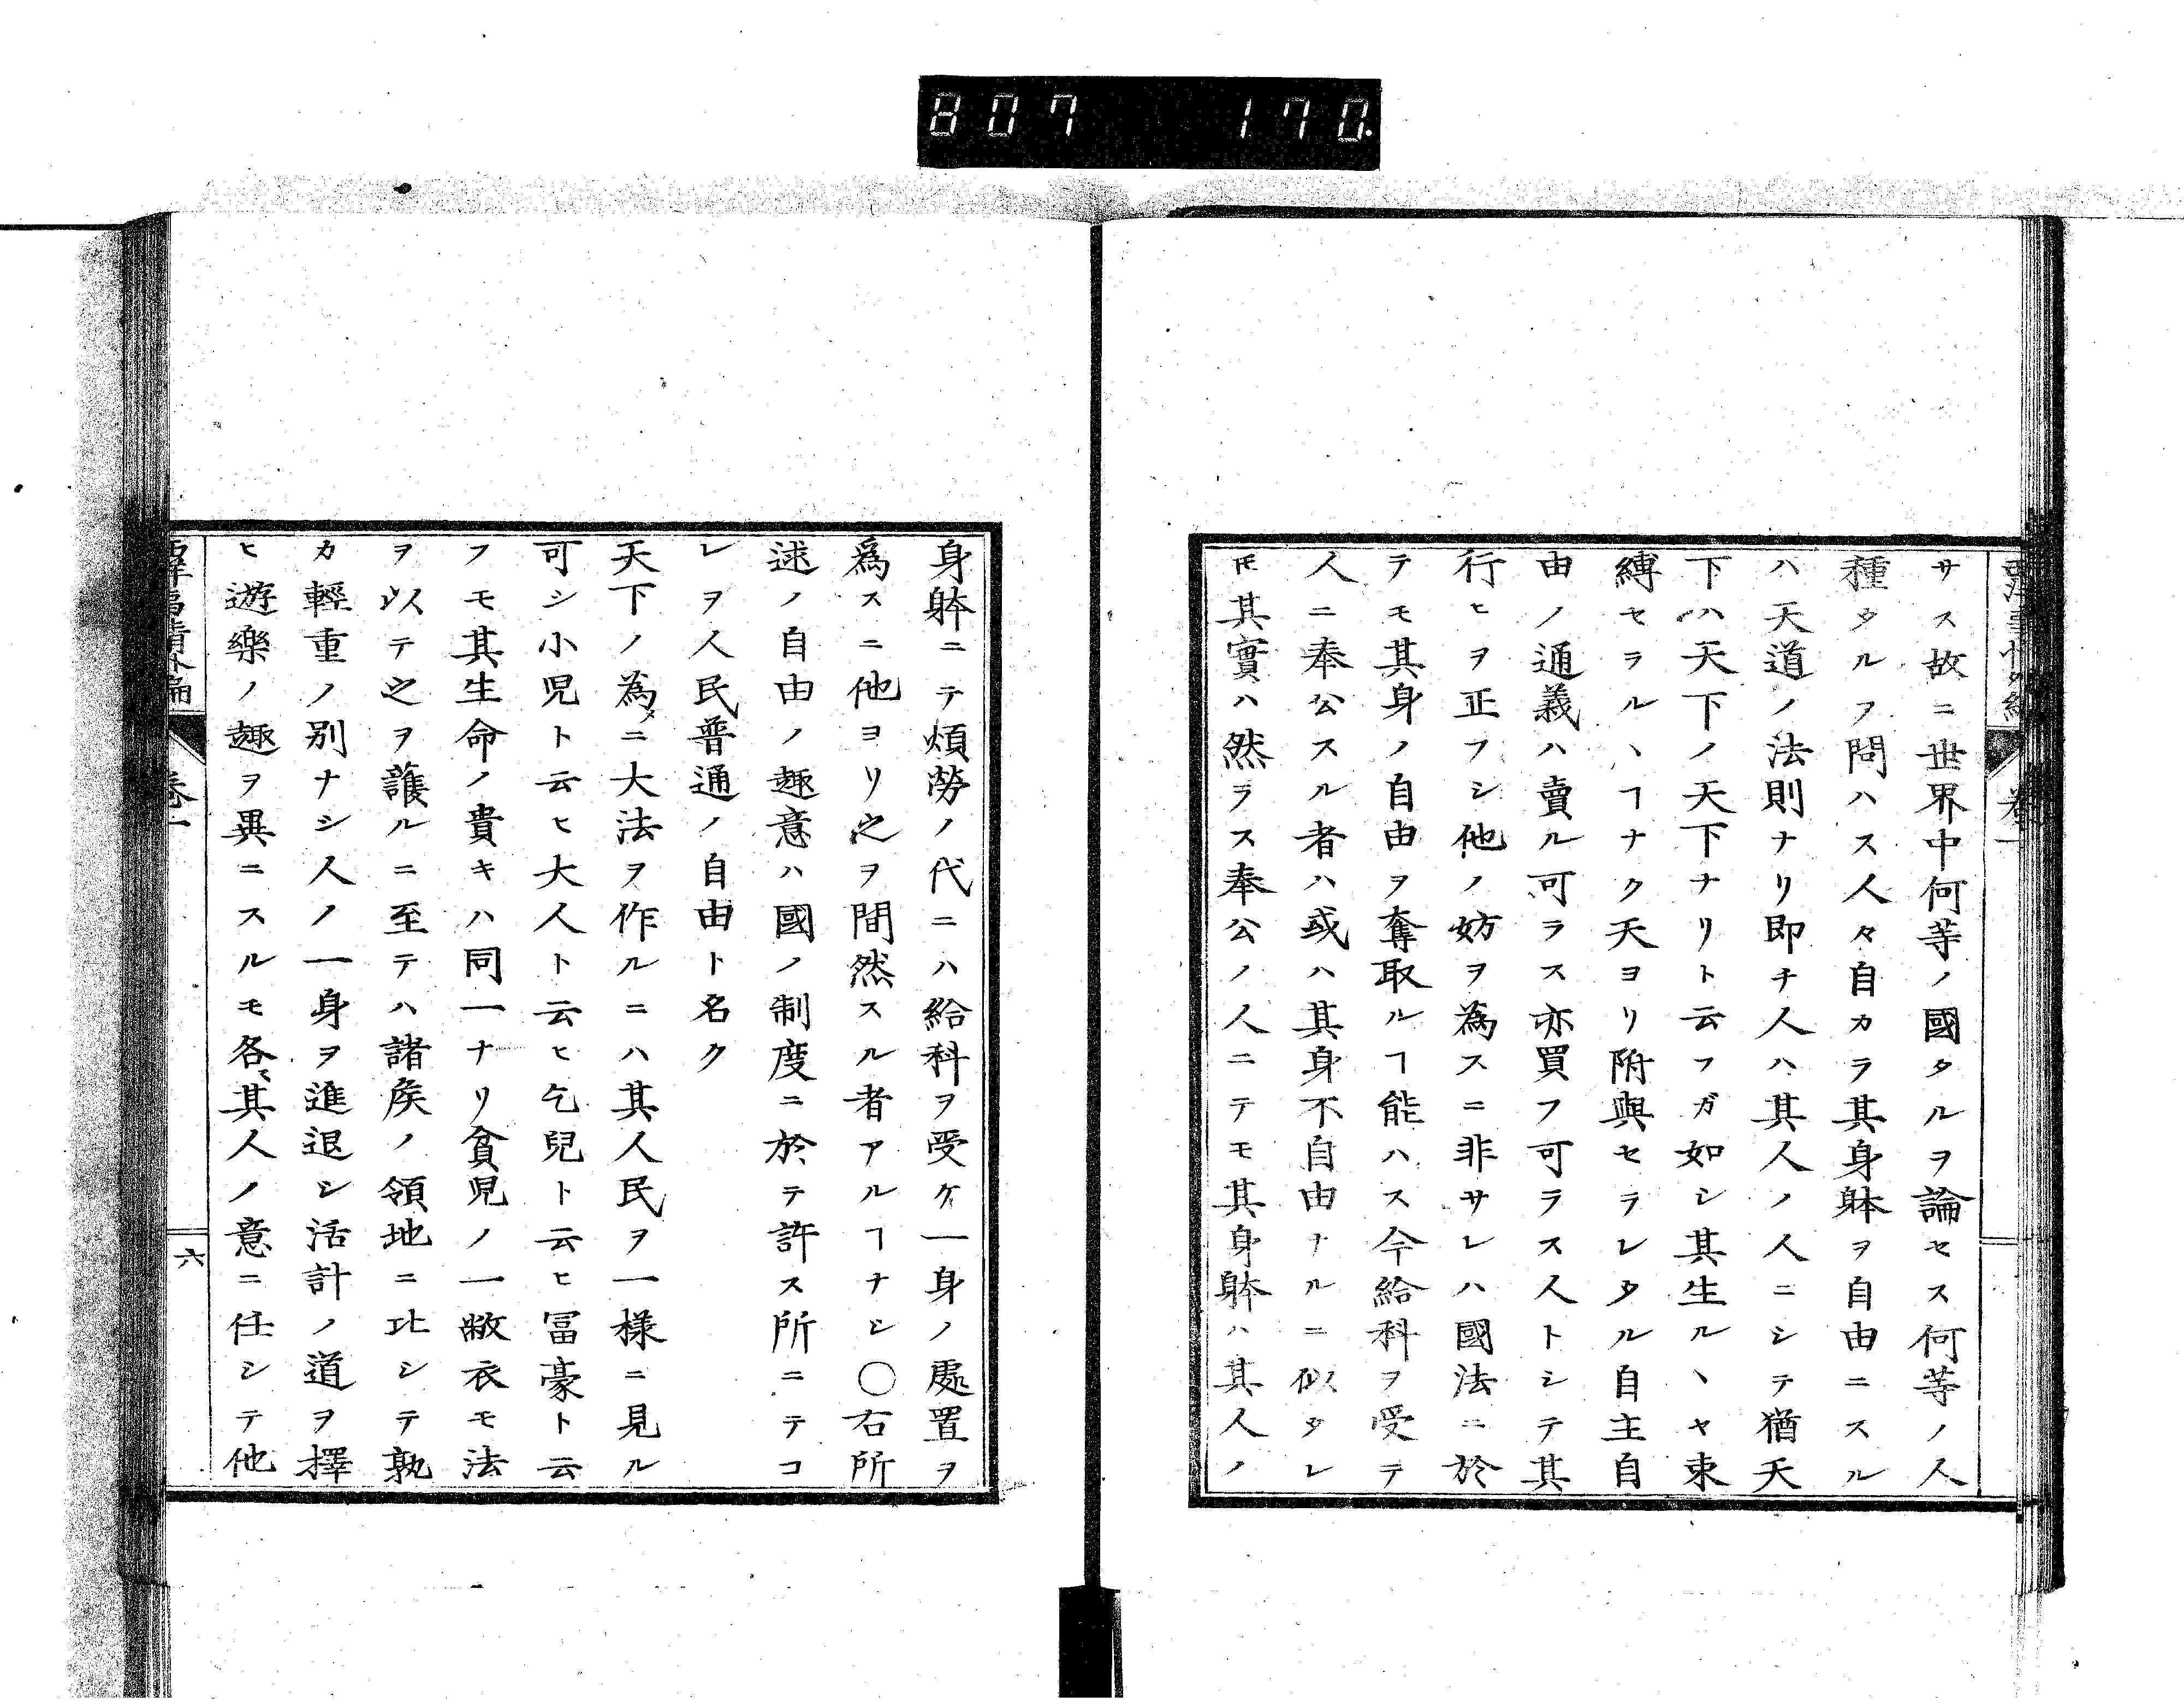 807 170.
西洋事情外編 卷一
サス故ニ世界中何等ノ國タルヲ論セス何等ノ人
種タルヲ問ハス人々自カラ其身躰ヲ自由ニスル
ハ天道ノ法則ナリ即チ人ハ其人ノ人ニシテ猶天
下ハ天下ノ天下ナリト云フガ如シ其生ルヽヤ束
縛セラルヽヿナク天ヨリ附與セラレタル自主自
由ノ通義ハ賣ル可ラス亦買フ可ラス人トシテ其
行ヒヲ正フシ他ノ妨ヲ為スニ非サレハ國法ニ於
テモ其身ノ自由ヲ奪取ルヿ能ハス今給料ヲ受テ
人ニ奉公スル者ハ或ハ其身不自由ナルニ似タレ
𪜈其實ハ然ラス奉公ノ人ニテモ其身躰ハ其人ノ
身躰ニテ煩勞ノ代ニハ給料ヲ受ケ一身ノ處置ヲ
爲スニ他ヨリ之ヲ間然スル者アルヿナシ○右所
述ノ自由ノ趣意ハ國ノ制度ニ於テ許ス所ニテコ
レヲ人民普通ノ自由ト名ク
天下ノ為メニ大法ヲ作ルニハ其人民ヲ一樣ニ見ル
可シ小児ト云ヒ大人ト云ヒ乞兒ト云ヒ冨豪ト云
フモ其生命ノ貴キハ同一ナリ貧児ノ一敝衣モ法
ヲ以テ之ヲ護ルニ至テハ諸矦ノ領地ニ比シテ孰
カ輕重ノ別ナシ人ノ一身ヲ進退シ活計ノ道ヲ擇
ヒ遊樂ノ趣ヲ異ニスルモ各〻其人ノ意ニ任シテ他
西洋事情外編 卷一 六